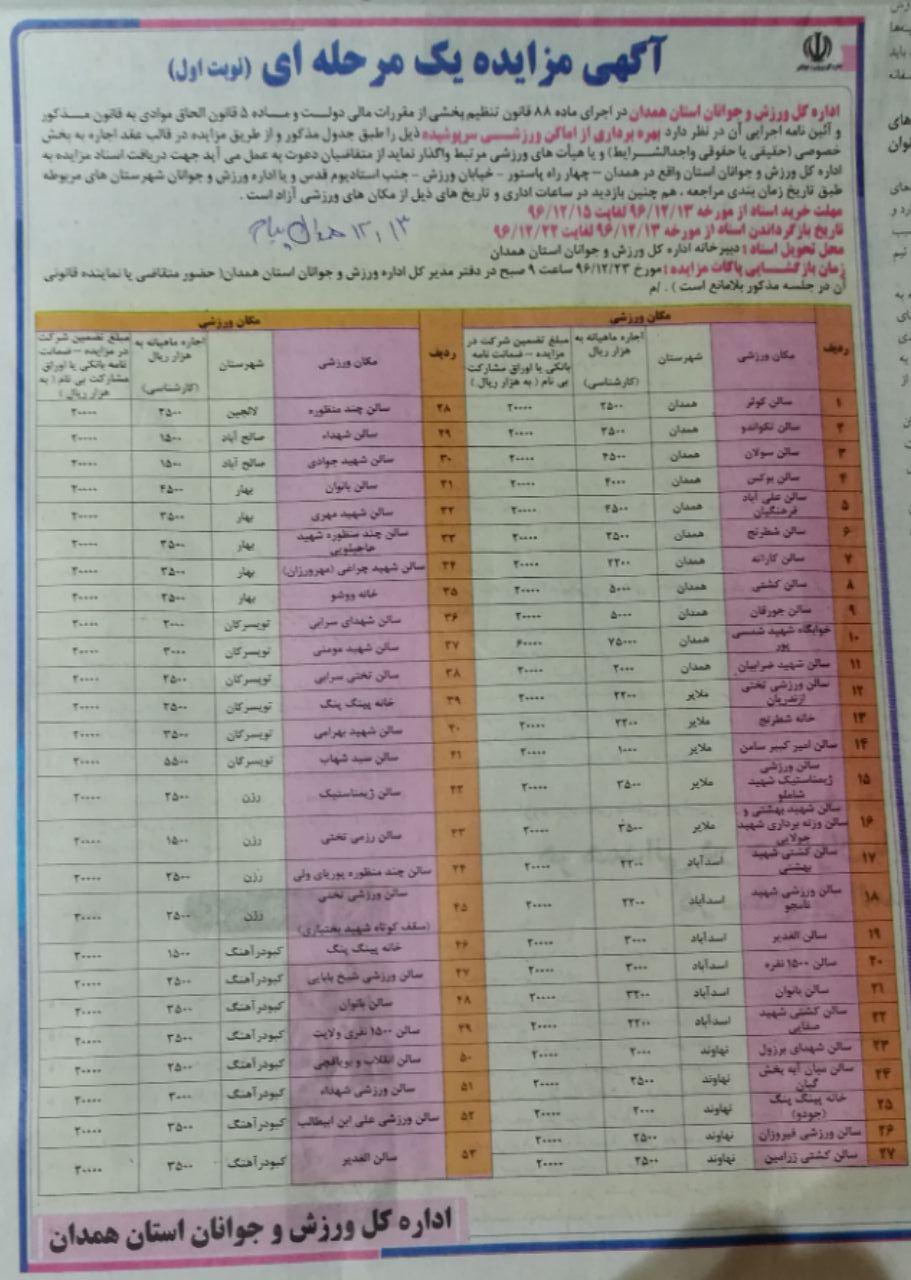 آگهی مزایده یک مرحله ای (نوبت اول)
اداره کل ورزش و جوانان استان همدان در اجرای ماده ۸۸ قانون تنظیم بخشی از مقررات مالی دولت و ماده ۵ قانون الحاق موادی به قانون مذکور
و آئین نامه اجرایی آن در نظر دارد بهره برداری از اماکن ورزشی سرپوشیده ذیل را طبق جدول مذکور و از طریق مزایده در قالب عقد اجاره به بخش
خصوصی (حقیقی یا حقوقی واجدالشرایط) و یا هیأت های ورزشی مرتبط واگذار نماید از متقاضیان دعوت به عمل می آید جهت دریافت اسناد مزایده به
اداره کل ورزش و جوانان استان واقع در همدان – چهار راه پاستور – خیابان ورزش – جنب استادیوم قدس و یا اداره ورزش و جوانان شهرستان های مربوطه
طبق تاریخ زمان بندی مراجعه ، هم چنین بازدید در ساعات اداری و تاریخ های ذیل از مکان های ورزشی آزاد است .
مهلت خرید اسناد از مورخه ۹۶/۱۲/۱۳ لغایت ۹۶/۱۲/۱۵
تاریخ بازگرداندن اسناد از مورخه ۹۶/۱۲/۱۳ لغایت ۹۶/۱۲/۲۲
۱۲/۱۳ همدان پیام
محل تحویل اسناد : دبیرخانه اداره کل ورزش و جوانان استان همدان
زمان بازگشایی پاکات مزایده : مورخ ۹۶/۱۲/۲۳ ساعت ۹ صبح در دفتر مدیر کل اداره ورزش و جوانان استان همدان( حضور متقاضی یا نماینده قانونی
آن در جلسه مذکور بلامانع است ) . /م
مکان ورزشی
ردیف مکان ورزشی شهرستان اجاره ماهیانه به هزار ریال (کارشناسی) مبلغ تضمین شرکت در مزایده – ضمانت نامه بانکی یا اوراق مشارکت بی نام ( به هزار ریال )
۱ سالن کوثر همدان ۲۵۰۰ ۲۰۰۰۰
۲ سالن تکواندو همدان ۳۵۰۰ ۲۰۰۰۰
۳ سالن سولان همدان ۴۵۰۰ ۲۰۰۰۰
۴ سالن بوکس همدان ۴۰۰۰ ۲۰۰۰۰
۵ سالن علی آباد فرهنگیان همدان ۴۵۰۰ ۲۰۰۰۰
۶ سالن شطرنج همدان ۲۵۰۰ ۲۰۰۰۰
۷ سالن کاراته همدان ۲۲۰۰ ۲۰۰۰۰
۸ سالن کشتی همدان ۵۰۰۰ ۲۰۰۰۰
۹ سالن جورقان همدان ۵۰۰۰ ۲۰۰۰۰
۱۰ خوابگاه شهید شمسی پور همدان ۷۵۰۰۰ ۶۰۰۰۰
۱۱ سالن شهید ضرابیان همدان ۲۰۰۰ ۲۰۰۰۰
۱۲ سالن ورزشی تختی ازندریان ملایر ۲۲۰۰ ۲۰۰۰۰
۱۳ خانه شطرنج ملایر ۲۲۰۰ ۲۰۰۰۰
۱۴ سالن امیر کبیر سامن ملایر ۱۰۰۰ ۲۰۰۰۰
۱۵ سالن ورزشی ژیمناستیک شهید شاملو ملایر ۳۵۰۰ ۲۰۰۰۰
۱۶ سالن شهید بهشتی و سالن وزنه برداری شهید جولایی ملایر ۳۵۰۰ ۲۰۰۰۰
۱۷ سالن کشتی شهید بهشتی اسدآباد ۲۲۰۰ ۲۰۰۰۰
۱۸ سالن ورزشی شهید نامجو اسدآباد ۲۲۰۰ ۲۰۰۰۰
۱۹ سالن الغدیر اسدآباد ۳۰۰۰ ۲۰۰۰۰
۲۰ سالن ۱۵۰۰ نفره اسدآباد ۳۰۰۰ ۲۰۰۰۰
۲۱ سالن بانوان اسدآباد ۳۲۰۰ ۲۰۰۰۰
۲۲ سالن کشتی شهید صفایی اسدآباد ۲۲۰۰ ۲۰۰۰۰
۲۳ سالن شهدای برزول نهاوند ۲۰۰۰ ۲۰۰۰۰
۲۴ سالن میان آبه بخش گیان نهاوند ۲۵۰۰ ۲۰۰۰۰
۲۵ خانه پینگ پنگ (جودو) نهاوند ۲۰۰۰ ۲۰۰۰۰
۲۶ سالن ورزشی فیروزان نهاوند ۲۵۰۰ ۲۰۰۰۰
۲۷ سالن کشتی زرامین نهاوند ۲۵۰۰ ۲۰۰۰۰
مکان ورزشی
ردیف مکان ورزشی شهرستان اجاره ماهیانه به هزار ریال (کارشناسی) مبلغ تضمین شرکت در مزایده – ضمانت نامه بانکی یا اوراق مشارکت بی نام ( به هزار ریال )
۲۸ سالن چند منظوره لالجین ۲۵۰۰ ۲۰۰۰۰
۲۹ سالن شهداء صالح آباد ۱۵۰۰ ۲۰۰۰۰
۳۰ سالن شهید جوادی صالح آباد ۱۵۰۰ ۲۰۰۰۰
۳۱ سالن بانوان بهار ۴۵۰۰ ۲۰۰۰۰
۳۲ سالن شهید مهری بهار ۳۵۰۰ ۲۰۰۰۰
۳۳ سالن چند منظوره شهید بهار ۳۵۰۰ ۲۰۰۰۰
۳۴ سالن شهید چراغی (مهرورزان) بهار ۳۵۰۰ ۲۰۰۰۰
۳۵ خانه ووشو بهار ۲۵۰۰ ۲۰۰۰۰
۳۶ سالن شهدای سرابی تویسرکان ۲۰۰۰ ۲۰۰۰۰
۳۷ سالن شهید مومنی تویسرکان ۳۰۰۰ ۲۰۰۰۰
۳۸ سالن تختی سرابی تویسرکان ۲۵۰۰ ۲۰۰۰۰
۳۹ خانه پینگ پنگ تویسرکان ۲۵۰۰ ۲۰۰۰۰
۴۰ سالن شهید بهرامی تویسرکان ۳۵۰۰ ۲۰۰۰۰
۴۱ سالن سید شهاب تویسرکان ۵۵۰۰ ۲۰۰۰۰
۴۲ سالن ژیمناستیک رزن ۲۵۰۰ ۲۰۰۰۰
۴۳ سالن رزمی تختی رزن ۱۵۰۰ ۲۰۰۰۰
۴۴ سالن چند منظوره پوریای ولی رزن ۲۵۰۰ ۲۰۰۰۰
۴۵ سالن ورزشی تختی (سقف کوتاه شهید بختیاری) رزن ۲۵۰۰ ۲۰۰۰۰
۴۶ خانه پینگ پنگ کبودرآهنگ ۱۵۰۰ ۲۰۰۰۰
۴۷ سالن ورزشی شیخ بابایی کبودرآهنگ ۲۵۰۰ ۲۰۰۰۰
۴۸ سالن بانوان کبودرآهنگ ۳۵۰۰ ۲۰۰۰۰
۴۹ سالن ۱۵۰۰ نفری ولایت کبودرآهنگ ۳۵۰۰ ۲۰۰۰۰
۵۰ سالن انقلاب و بویاقچی کبودرآهنگ ۲۵۰۰ ۲۰۰۰۰
۵۱ سالن ورزشی شهداء کبودرآهنگ ۲۰۰۰ ۲۰۰۰۰
۵۲ سالن ورزشی علی ابن ابیطالب کبودرآهنگ ۳۵۰۰ ۲۰۰۰۰
۵۳ سالن الغدیر کبودرآهنگ ۳۵۰۰ ۲۰۰۰۰
اداره کل ورزش و جوانان استان همدان